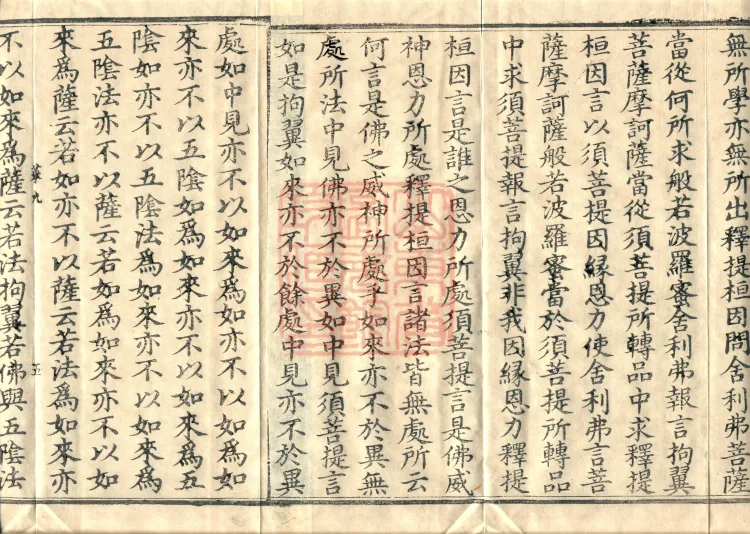 無所學亦無所出釋提桓因問舍利弗菩薩
當從何所求般若波羅蜜舍利弗報言拘翼
菩薩摩訶薩當從須菩提所轉品中求釋提
桓因言以須菩提因緣恩力使舍利弗言菩
薩摩訶薩般若波羅蜜當於須菩提所轉品
中求須菩提報言拘翼非我因緣恩力釋提
桓因言是誰之恩力所處須菩提言是佛威
神恩力所處釋提桓因言諸法皆無處所云
何言是佛之威神所處乎如來亦不於異無
處所法中見佛亦不於異如中見須菩提言
如是拘翼如來亦不於餘處中見亦不於異
處如中見亦不以如來爲如亦不以如爲如
來亦不以五陰如爲如來亦不以如來爲五
陰如亦不以五陰法爲如來亦不以如來爲
五陰法亦不以薩云若如爲如來亦不以如
來爲薩云若如亦不以薩云若法爲如來亦
不以如來爲薩云若法拘翼若佛與五陰法
九
五